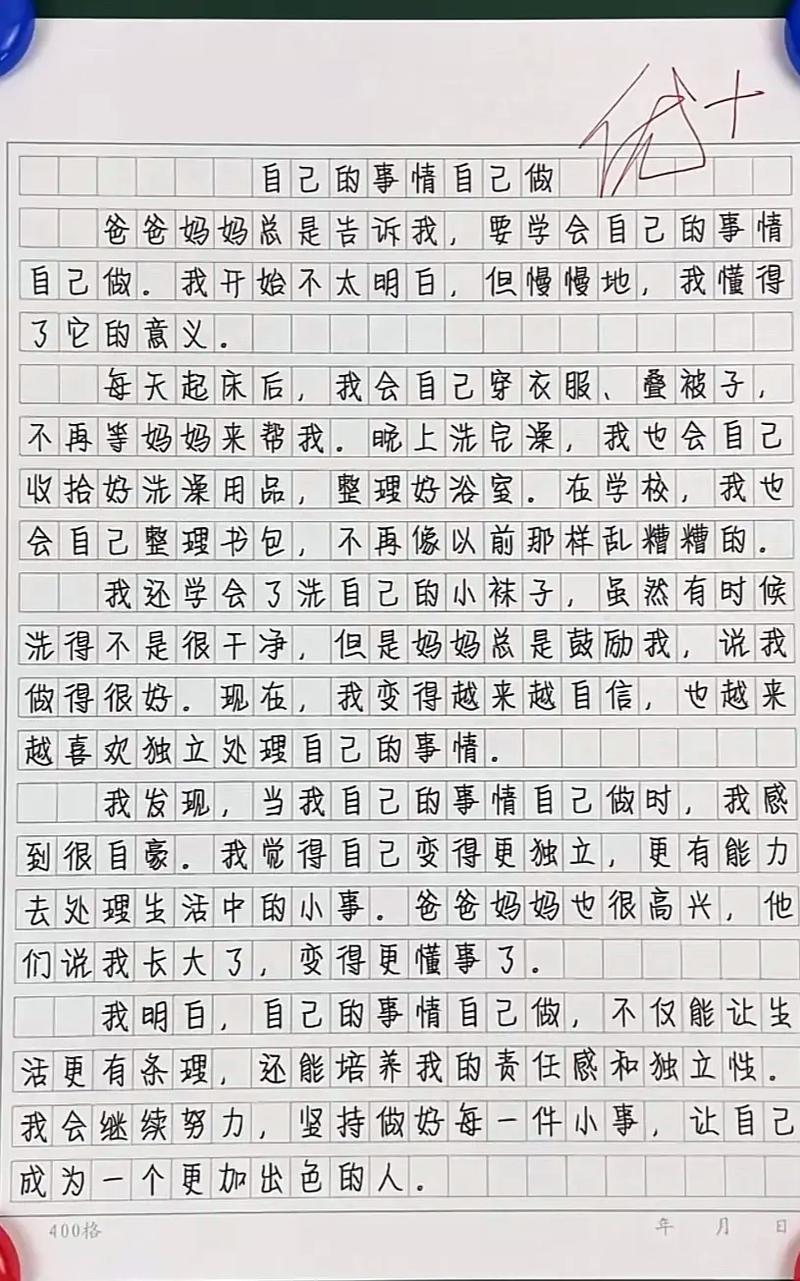 优+
自己的事情自己做
爸爸妈妈总是告诉我，要学会自己的事情
自己做。我开始不太明白，但慢慢地，我懂得
了它的意义。
每天起床后，我会自己穿衣服、叠被子，
不再等妈妈来帮我。晚上洗完澡，我也会自己
收拾好洗澡用品，整理好浴室。在学校，我也
会自己整理书包，不再像以前那样乱糟糟的。
我还学会了洗自己的小袜子，虽然有时候
洗得不是很干净，但是妈妈总是鼓励我，说我
做得很好。现在，我变得越来越自信，也越来
越喜欢独立处理自己的事情。
我发现，当我自己的事情自己做时，我感
到很自豪。我觉得自己变得更独立，更有能力
去处理生活中的小事。爸爸妈妈也很高兴，他
们说我长大了，变得更懂事了。
我明白，自己的事情自己做，不仅能让生
活更有条理，还能培养我的责任感和独立性。
我会继续努力，坚持做好每一件小事，让自己
成为一个更加出色的人。
400格 年 月 日